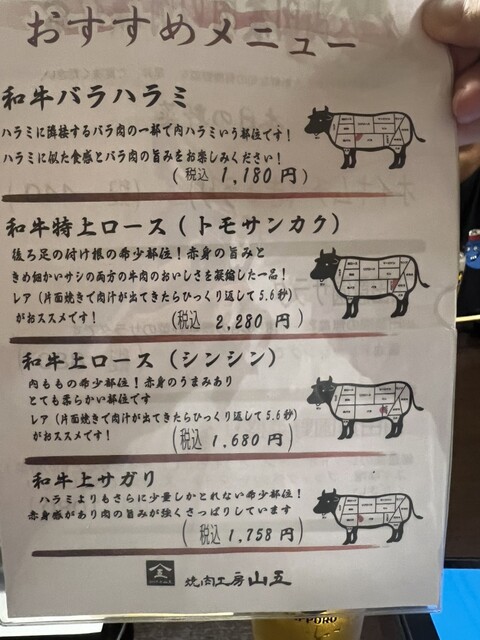 おすすめメニュー
和牛バラハラミ
ハラミに隣接するバラ肉の一部で内ハラミいう部位です!
ハラミに似た食感とバラ肉の旨みをお楽しみください!
(税込 1,180 円)
和牛特上ロース(トモサンカク)
後ろ足の付け根の希少部位!赤身の旨みと
きめ細かいサシの両方の牛肉のおいしさを凝縮した一品!
レア(片面焼きで肉汁が出てきたらひっくり返して5.6秒)
がおススメです!
(税込 2,280 円)
和牛上ロース(シンシン)
内ももの希少部位!赤身のうまみあり
とても柔らかい部位です
レア(片面焼きで肉汁が出てきたらひっくり返して5.6秒)
がおススメです!
(税込 1,680円)
和牛上サガリ
ハラミよりもさらに少量しかとれない希少部位!
赤身感があり肉の旨みが強くさっぱりしています
(税込 1,758円)
焼肉工房 山五